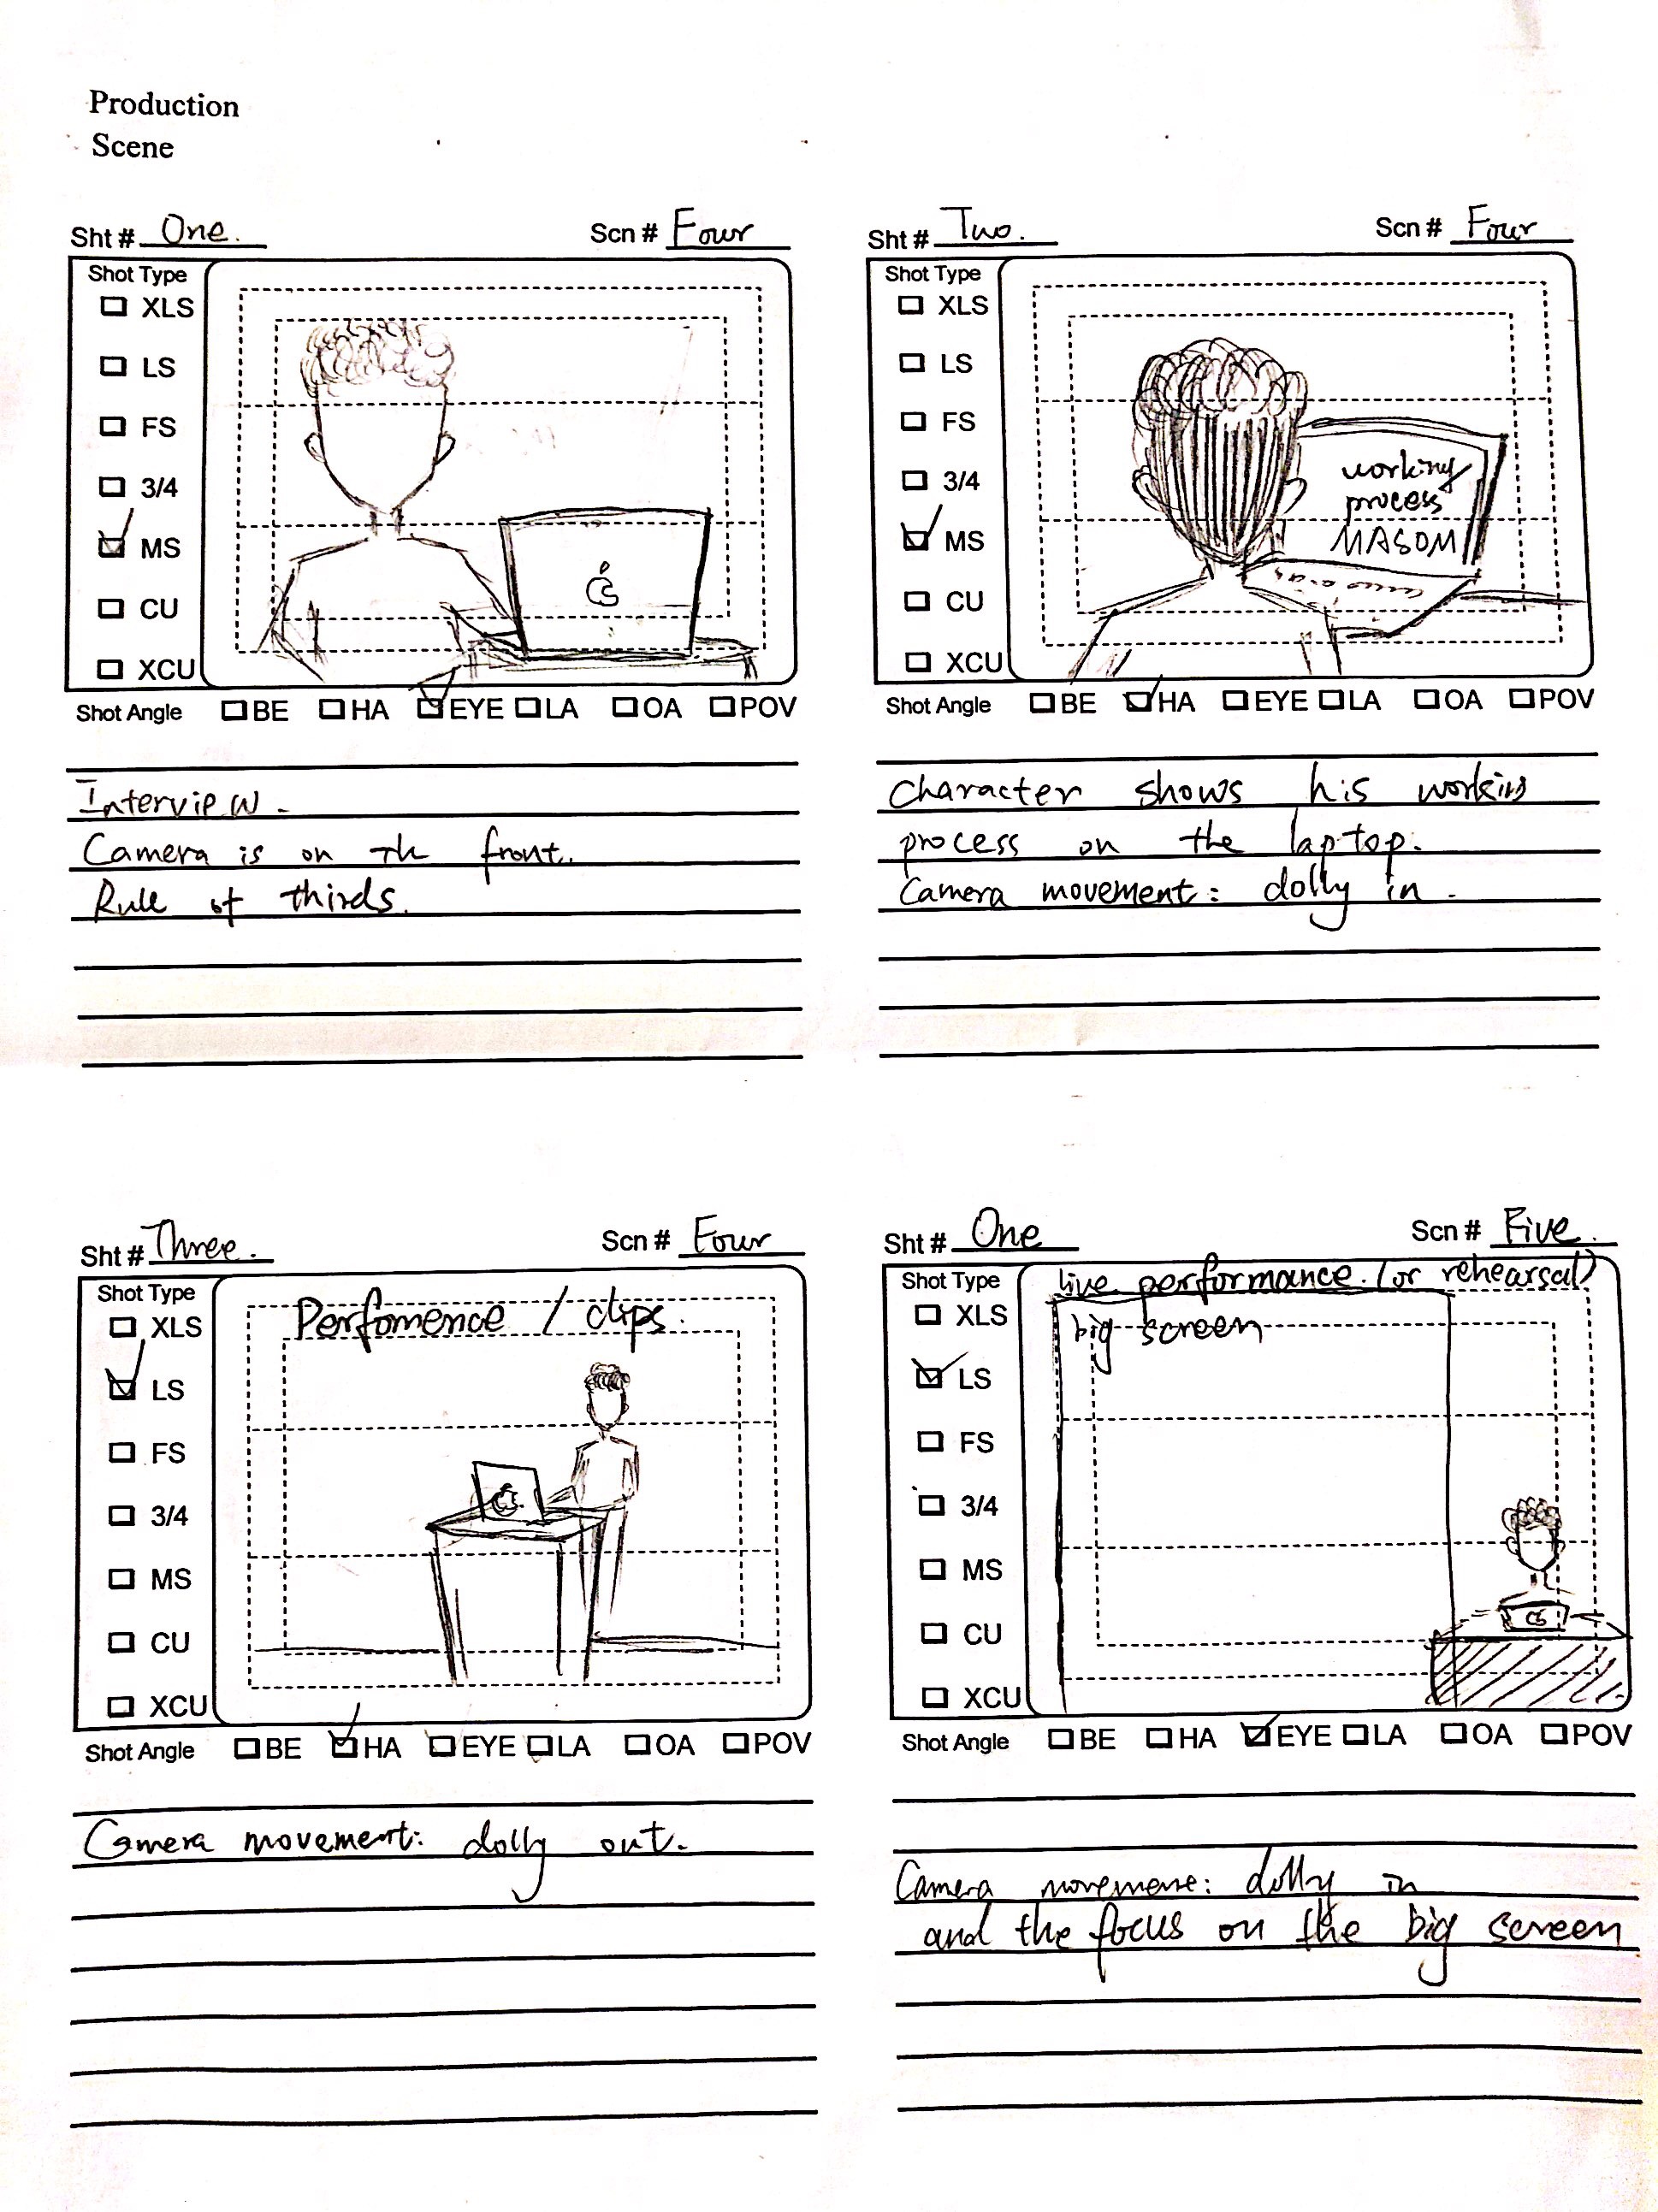 Production
Scene
Sht # One.
Scn # Four
Shot Type
XLS
LS
FS
3/4
MS
CU
XCU
Shot Angle BE HA EYE LA OA POV
Interview.
Camera is on th front.
Rule of thirds.
Sht # Two.
Scn # Four
Shot Type
XLS
LS
FS
3/4
MS
CU
XCU
working
process
MASOM
Shot Angle BE HA EYE LA OA POV
character shows his working
process on the laptop.
Camera movement: dolly in.
Sht # Three.
Scn # Four
Shot Type
XLS
LS
FS
3/4
MS
CU
XCU
Perfomence / clips.
Shot Angle BE HA EYE LA OA POV
Camera movement: dolly out.
Sht # One
Scn # Five.
Shot Type
XLS
LS
FS
3/4
MS
CU
XCU
live performance. (or rehearsal)
big screen
Shot Angle BE HA EYE LA OA POV
Camera movemene: dolly in
and the focus on the big screen